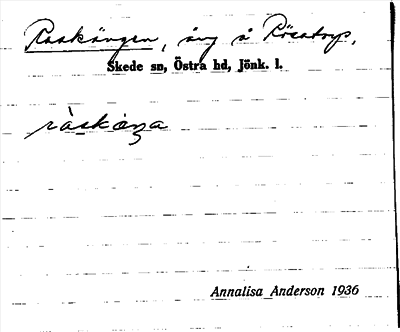 Raskängen, äng å Rösatorp,
Skede sn, Östra hd, Jönk. l.
ràskæŋa
Annalisa Anderson 1936